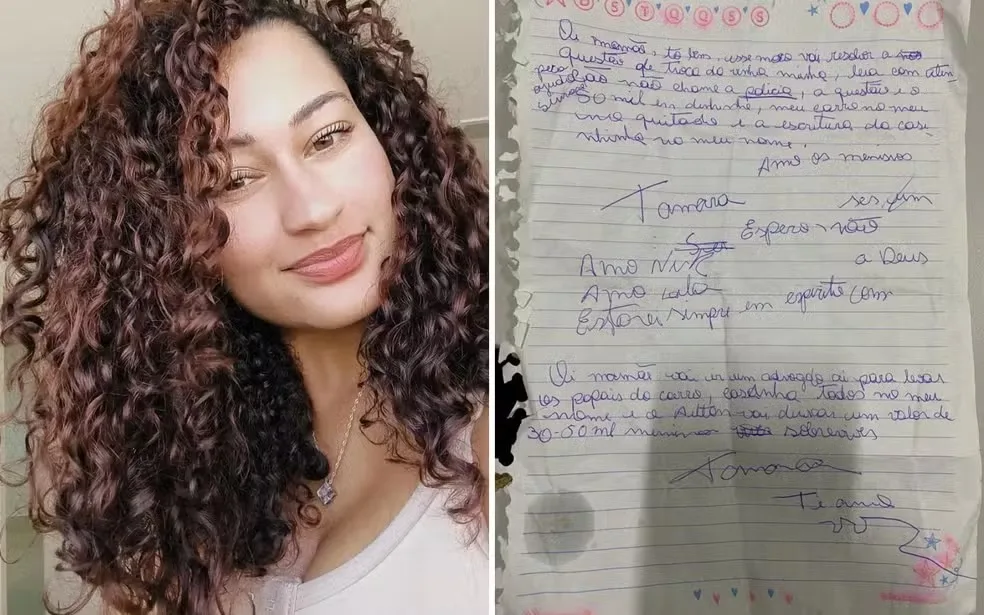 Oi mamãe, tô bem, esse moço vai resolver a
questão de troca da minha, leia com aten
ção não chame a policia, a questão é o
50 mil em dinheiro, meu carro no meu
quitado e a escritura da casi
nha no meu nome.
Amo os meninos
Tamara
Espero não
Amo a Deus
Amo
Estarei sempre em espirito com
Oi mamãe vai ir um advogado ai para levar
os papais do carro, casinha todos no meu
nome e o vai deixar um valor de
30-50 mil meninos
Tamara
Te amo